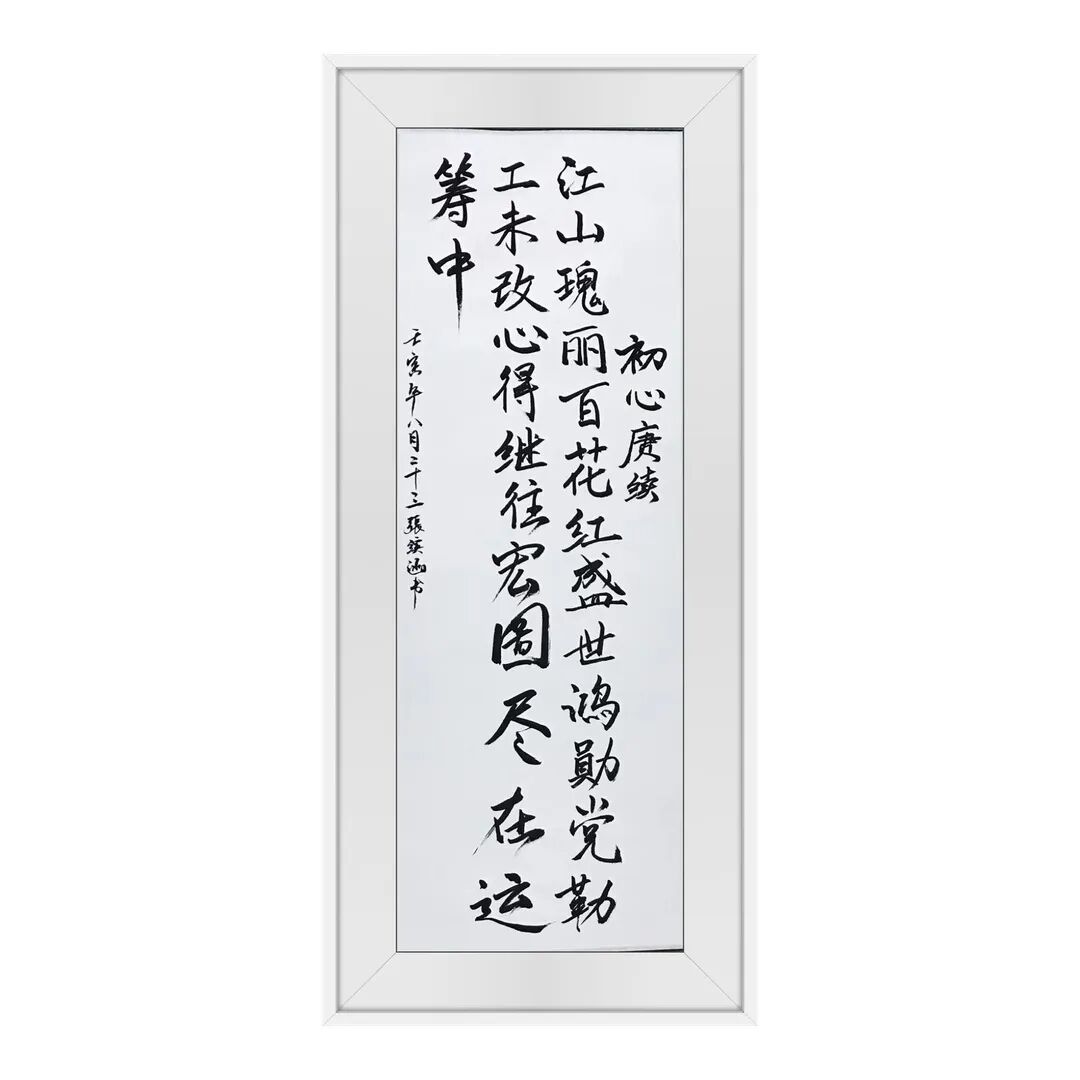 初心赓续
江山瑰丽百花红盛世鸿勋党勤
工未改心得继往宏图尽在运
筹中
壬寅年八月二十三張瑛涵书